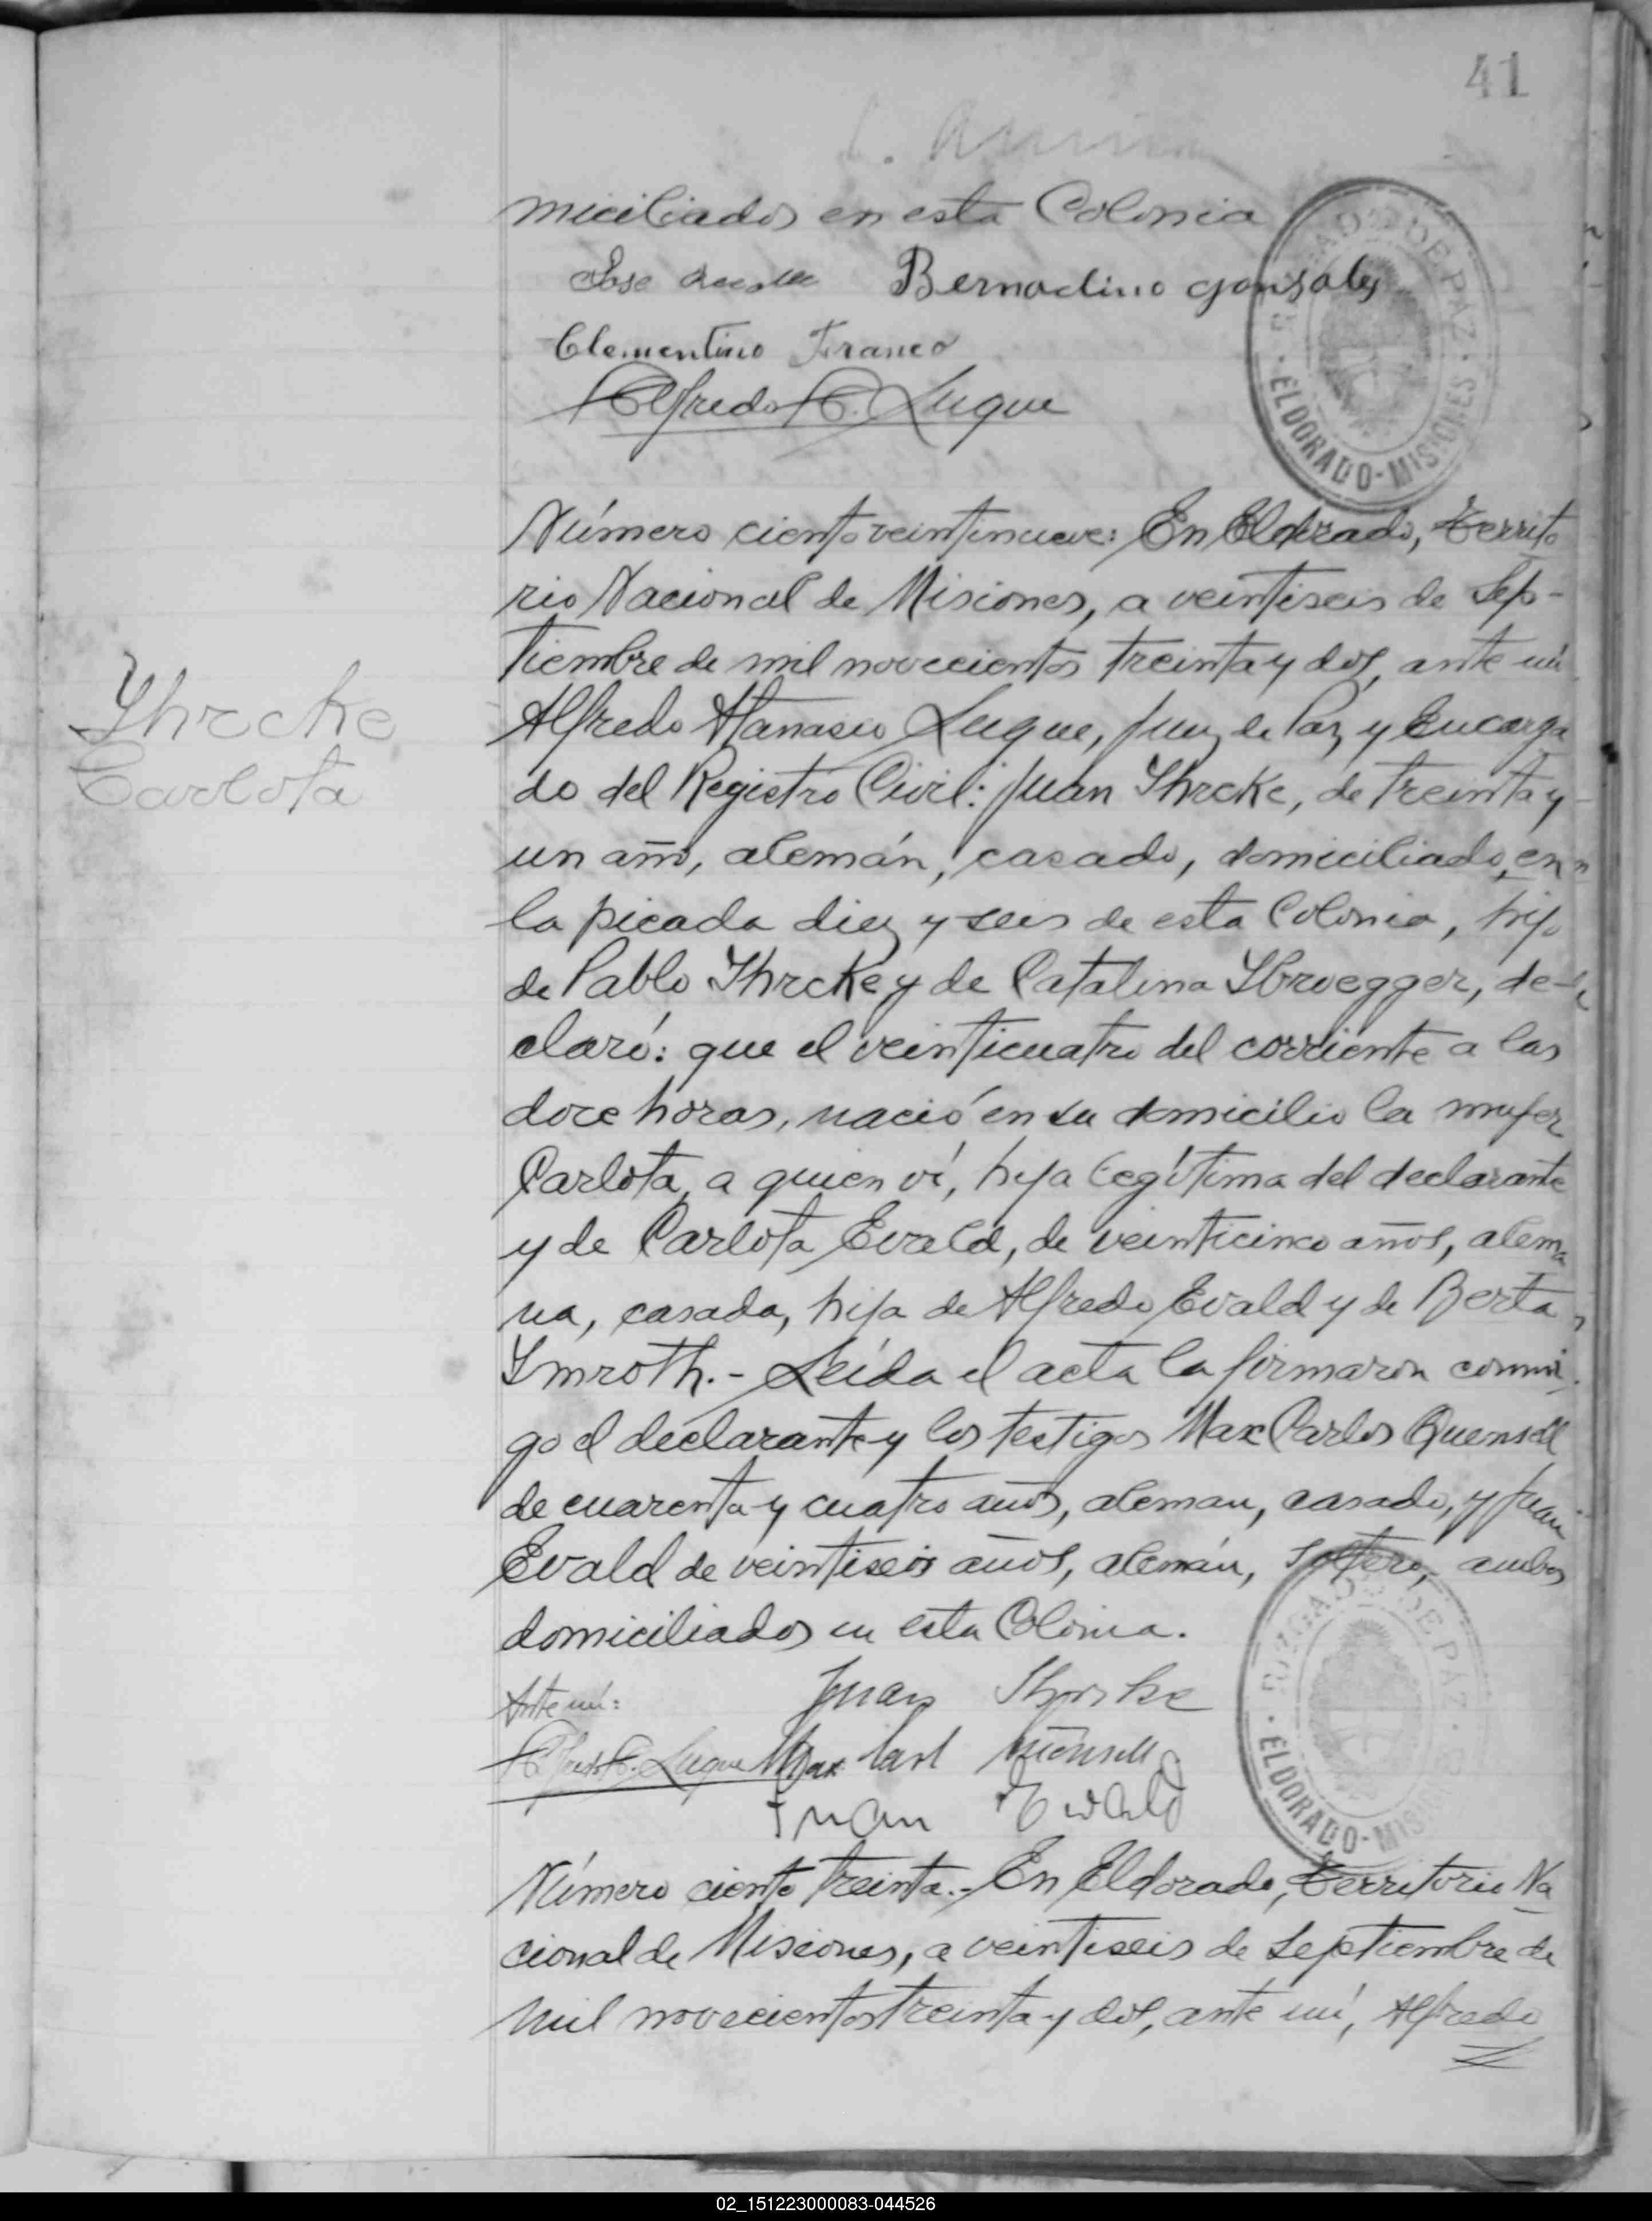 41
miciliados en esta Colonia
Jose Bernadino Gonsales
Clementino Franco
Alfredo A. Luque
JUZGADO DE PAZ · ELDORADO-MISIONES ·
Número ciento veintinueve: En Eldorado, Territo
rio Nacional de Misiones, a veintiseis de Sep-
tiembre de mil novecientos treinta y dos, ante mí
Alfredo Atanasio Luque, Juez de Paz y Encarga
Yhrcke
do del Registro Civil: Juan Yhrcke, de treinta y
Carlota
un año, alemán, casado, domiciliado, en
la picada diez y seis de esta Colonia, hijo
de Pablo Yhrcke y de Catalina Ybruegger, de-
claró: que el veinticuatro del corriente a las
doce horas, nació en su domicilio la mujer
Carlota, a quien ví, hija legítima del declarante
y de Carlota Evald, de veinticinco años, alema
na, casada, hija de Alfredo Evald y de Berta
Ymroth.- Leída el acta la firmaron conmi
go el declarante y los testigos Max Carlos Quensell
de cuarenta y cuatro años, aleman, casado, y Juan
Evald de veintiseis años, alemán, soltero, ambos
domiciliados en esta Colonia.
Ante mí: Juan
Alfredo A. Luque Max Carl
Juan Ewald
JUZGADO DE PAZ · ELDORADO-MISIONES
Número ciento treinta.- En Eldorado, Territorio Na
cional de Misiones, a veintiseis de Septiembre de
mil novecientos treinta y dos, ante mí, Alfredo
02_151223000083-044526